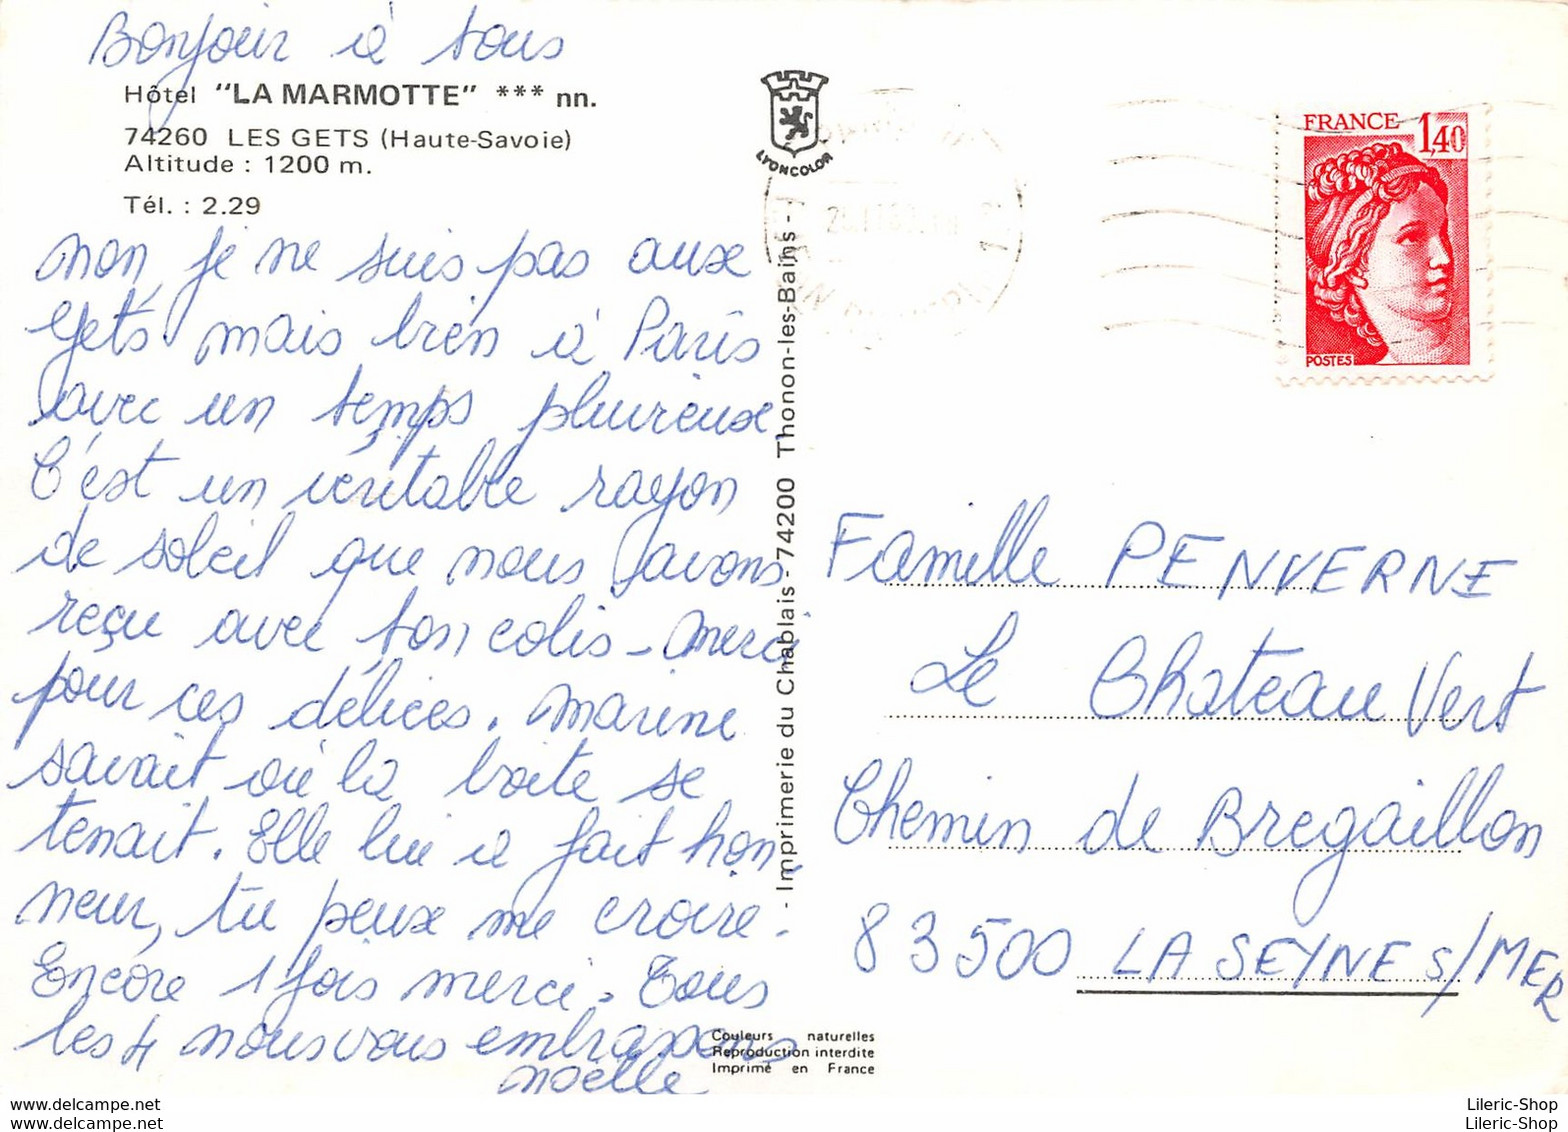 Bonjour à tous
Hôtel "LA MARMOTTE" *** nn.
74260 LES GETS (Haute-Savoie)
Altitude : 1200 m.
Tél. : 2.29
non, je ne suis pas aux
Gets mais bien à Paris
avec un temps pluvieux.
C'est un véritable rayon
de soleil que nous avons
reçu avec ton colis - Merci
pour ces délices. Marine
savait où la boite se
tenait. Elle lui a fait hon-
neur, tu peux me croire.
Encore 1 fois merci. Tous
les 4 nous vous embrassons
Noëlle
LYONCOLOR
- Imprimerie du Chablais - 74200 Thonon-les-Bains -
FRANCE 1,40
POSTES
Famille PENVERNE
Le Chateau Vert
Chemin de Bregaillon
83500 LA SEYNE S/MER
Couleurs naturelles
Reproduction interdite
Imprimé en France
www.delcampe.net
www.delcampe.net
Lileric-Shop
Lileric-Shop